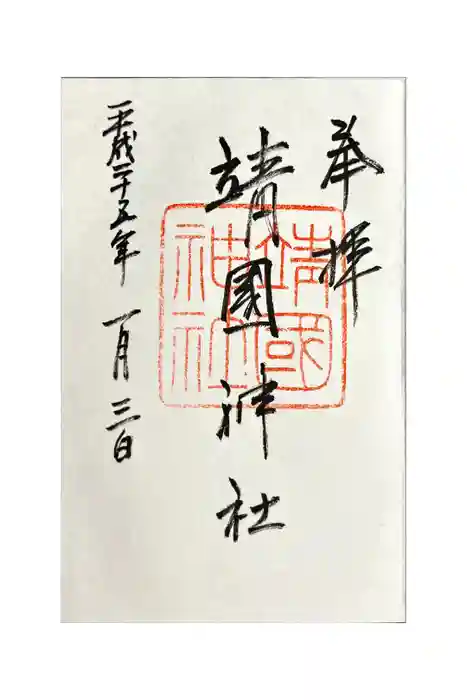 奉拝
靖國神社
靖國神社
平成二十五年 一月三日